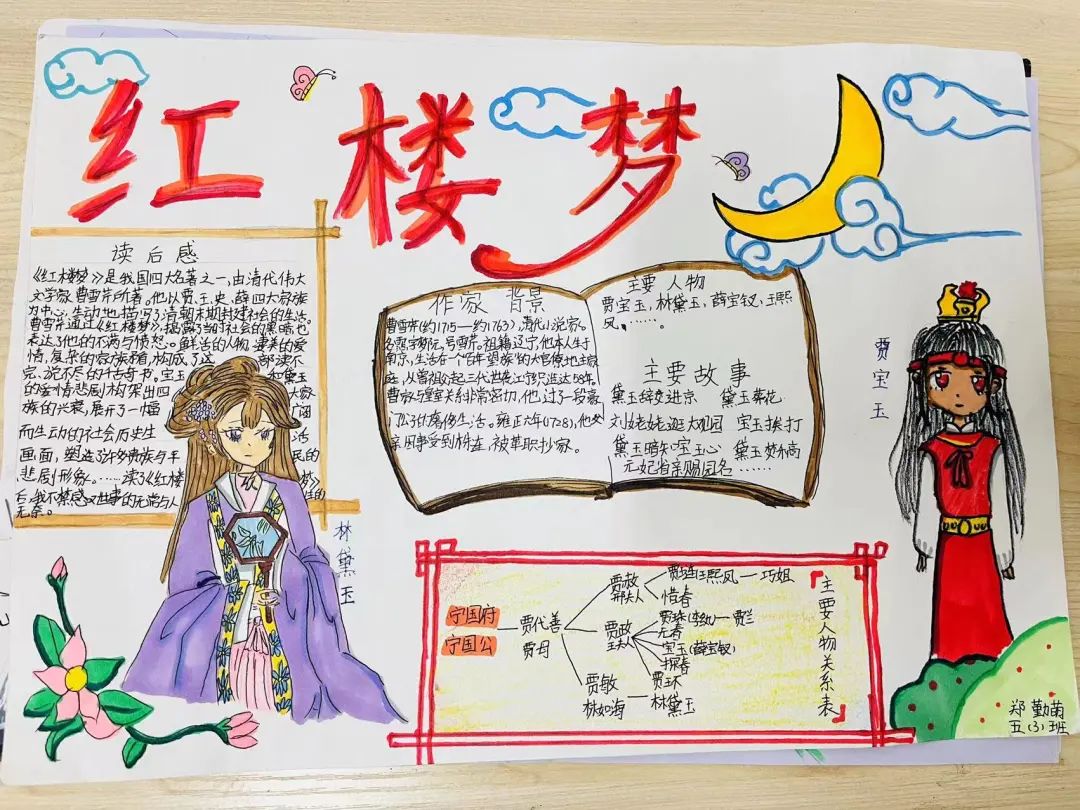 红楼梦
读后感
《红楼梦》是我国四大名著之一,由清代伟大
文学家曹雪芹所著。他以贾、王、史、薛四大家族
为中心,生动地描写了清朝末期封建社会的生活。
曹雪芹通过《红楼梦》,揭露了当时社会的黑暗也
表达了他的不满与愤怒。鲜活的人物,凄美的爱
情,复杂的家族矛盾,构成了这 部读不
完、说不尽的千古奇书。宝玉 和黛玉
的爱情悲剧,构架出四 大家
族的兴衰,展开了一幅 广阔
而生动的社会历史生 活
画面,塑造了许多贵族与平 民的
悲剧形象。……读了《红楼 梦》
后,我不禁感叹世事的无常与人
无奈。
作家 背景
曹雪芹(约1715—约1763),清代小说家。
名霑,字梦阮,号雪芹。祖籍辽宁,他本人生于
南京,生活在一个百年望族的大官僚地主家
庭,从曾祖父起三代世袭江宁织造达58年
曹家与皇室关系非常密切,他度过了一段豪
门公子的奢侈生活。雍正六年(1728),他父
亲因事受到株连,被革职抄家。
主要 人物
贾宝玉,林黛玉,薛宝钗,王熙
凤,……。
主要故事
黛玉辞父进京 黛玉葬花
刘姥姥逛大观园 宝玉挨打
黛玉暗知宝玉心 黛玉焚稿
元妃省亲赐园名……
林黛玉
贾宝玉
宁国府
宁国公
贾代善
贾母
贾赦
邢夫人
贾琏(王熙凤)—巧姐
惜春
贾政
王夫人
贾珠(李纨)—贾兰
元春
宝玉(薛宝钗)
探春
贾环
贾敏
林如海
林黛玉
「主要人物关系表」
郑勤苗
五(3)班